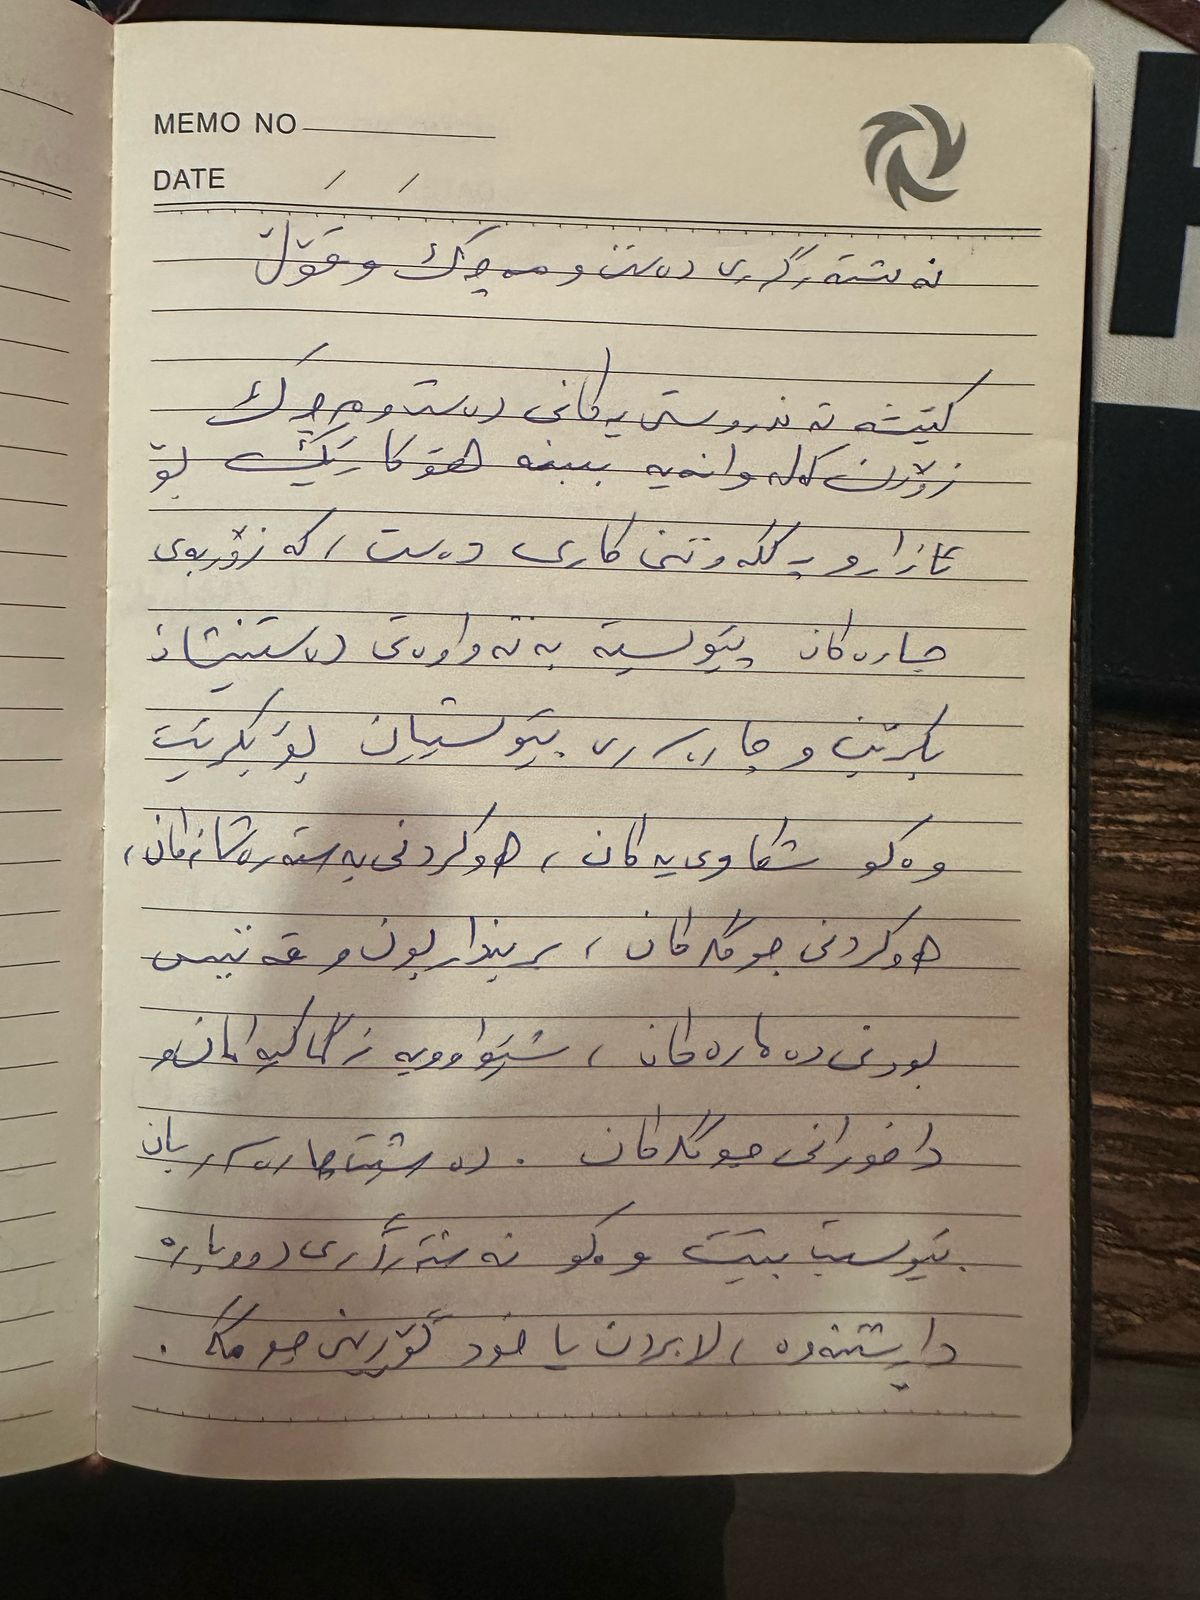 MEMO NO
DATE / /
نەشتەرگری دەست و مەچک و قۆڵ
کێشە تەندروستی یەکانی دەست و مچک
زۆرن کەلەوانەیە ببنە هۆکارێک بۆ
ئازار و پەککەوتنی کاری دەست ، کە زۆربەی
جارەکان پێویستە بەتەواوەتی دەستنیشان
بکرێن و چارەسەری پێویستیان بۆ بکرێت
وەکو شکاوی یەکان ، هەوکردنی بەستەرەشانەکان ،
هەوکردنی جومگەکان ، بریندار بون و قەتیس
بوونی دەمارەکان ، شێواوویە زگماکیەکان و
داخورانی جومگەکان . دەشێت چارەسەریان
پێویست بێت وەکو نەشتەرگری دووبارە
دارشتنەوە ، لابردن یا خود گۆڕینی جومگە .